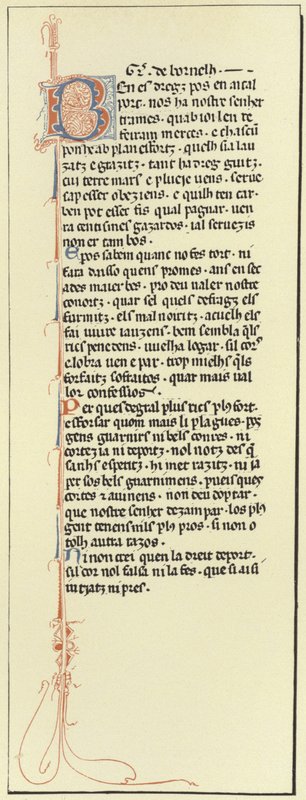 Gr̃. de bornelh.
BEn es dregz pos en aital
port. nos ha nostre senher
trames. quab ioi len re
feiram merces. e chascũ
ponhe ab plan esfortz. quelh sia lau
zatz e grazitz. tant ha dreg guitz.
cui terre mars e plueie uens. serue
sap esser obeziens. e quilh ten car.
ben pot esser fis qual pagnar. uen
ra centisines gazardos. ial seruezis
non er tam bos.
E pos sabem quanc no fes tort. ni
fara daisso quens promes. ans en sec
ades maierbes. pro deu ualer nostre
conortz. quar sel quels desragz els
furmitz. els mal noiritz. acuelh els
fai uiure iauzens. ben sembla q̃ls
ries penedens. uuelha logar. sil cors
e lobra uen e par. trop mielhs q̃ls
forfaitz sofraitos. quar mais ual
lor confessios.
Per ques degral plus ries pl9 fort.
esforsar quom mais li plagues. peg
gens guarnirs ni bels conres. ni
cortezia ni deportz. nol notz des q̃
sanhs esperitz. hi met razitz. ni ia
per sos bels guarnimens. pueis quer
cortes e auinens. non deu doptar.
que nostre senher dezampar. los pl9
gent tenens nils pl9 pros. si non o
tolh autra razos.
Ni non crei quen la dreit deport.
sil cor nol falsa ni la fes. que si aisi
ni tratz ni pres.